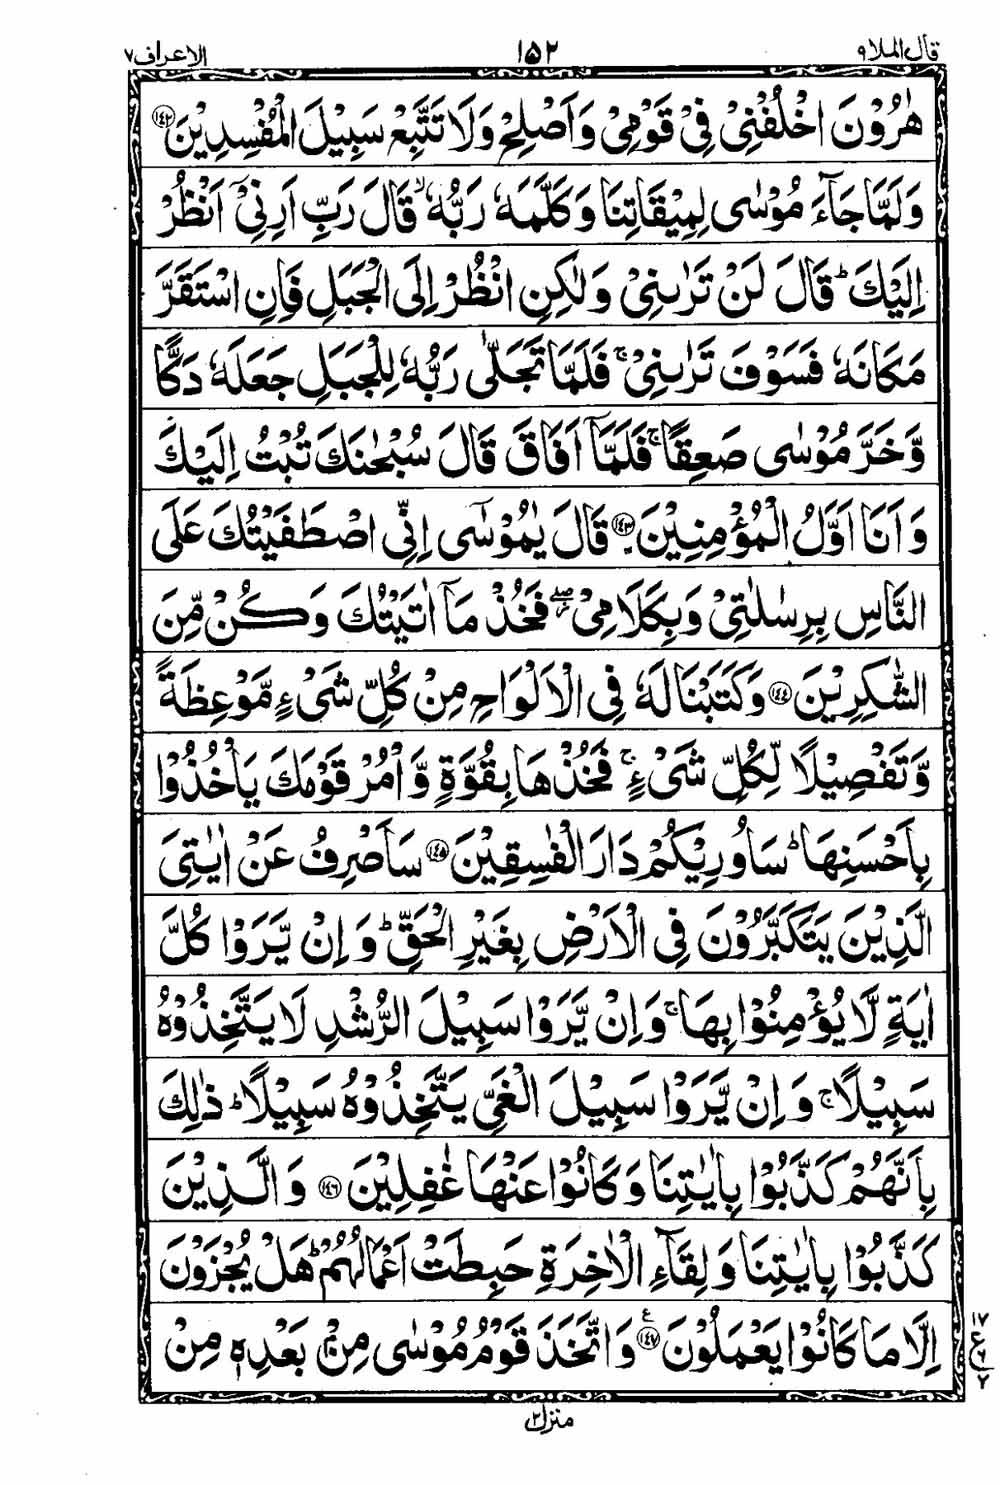 قال الملا ٩ ١٥٢ الاعراف ٧
هٰرُوْنَ اخْلُفْنِیْ فِیْ قَوْمِیْ وَاَصْلِحْ وَلَا تَتَّبِعْ سَبِیْلَ الْمُفْسِدِیْنَ ﴿١٤٢﴾
وَلَمَّا جَآءَ مُوْسٰی لِمِیْقَاتِنَا وَكَلَّمَهٗ رَبُّهٗ ۙ قَالَ رَبِّ اَرِنِیْۤ اَنْظُرْ
اِلَیْكَ ؕ قَالَ لَنْ تَرٰىنِیْ وَلٰكِنِ انْظُرْ اِلَی الْجَبَلِ فَاِنِ اسْتَقَرَّ
مَكَانَهٗ فَسَوْفَ تَرٰىنِیْ ۚ فَلَمَّا تَجَلّٰی رَبُّهٗ لِلْجَبَلِ جَعَلَهٗ دَكًّا
وَّخَرَّ مُوْسٰی صَعِقًا ۚ فَلَمَّاۤ اَفَاقَ قَالَ سُبْحٰنَكَ تُبْتُ اِلَیْكَ
وَاَنَا اَوَّلُ الْمُؤْمِنِیْنَ ﴿١٤٣﴾ قَالَ یٰمُوْسٰۤی اِنِّی اصْطَفَیْتُكَ عَلَی
النَّاسِ بِرِسٰلٰتِیْ وَبِكَلَامِیْ ۖ فَخُذْ مَاۤ اٰتَیْتُكَ وَكُنْ مِّنَ
الشّٰكِرِیْنَ ﴿١٤٤﴾ وَكَتَبْنَا لَهٗ فِی الْاَلْوَاحِ مِنْ كُلِّ شَیْءٍ مَّوْعِظَةً
وَّتَفْصِیْلًا لِّكُلِّ شَیْءٍ ۚ فَخُذْهَا بِقُوَّةٍ وَّاْمُرْ قَوْمَكَ یَاْخُذُوْا
بِاَحْسَنِهَا ؕ سَاُورِیْكُمْ دَارَ الْفٰسِقِیْنَ ﴿١٤٥﴾ سَاَصْرِفُ عَنْ اٰیٰتِیَ
الَّذِیْنَ یَتَكَبَّرُوْنَ فِی الْاَرْضِ بِغَیْرِ الْحَقِّ ؕ وَاِنْ یَّرَوْا كُلَّ
اٰیَةٍ لَّا یُؤْمِنُوْا بِهَا ۚ وَاِنْ یَّرَوْا سَبِیْلَ الرُّشْدِ لَا یَتَّخِذُوْهُ
سَبِیْلًا ۚ وَاِنْ یَّرَوْا سَبِیْلَ الْغَیِّ یَتَّخِذُوْهُ سَبِیْلًا ؕ ذٰلِكَ
بِاَنَّهُمْ كَذَّبُوْا بِاٰیٰتِنَا وَكَانُوْا عَنْهَا غٰفِلِیْنَ ﴿١٤٦﴾ وَالَّذِیْنَ
كَذَّبُوْا بِاٰیٰتِنَا وَلِقَآءِ الْاٰخِرَةِ حَبِطَتْ اَعْمَالُهُمْ ؕ هَلْ یُجْزَوْنَ
اِلَّا مَا كَانُوْا یَعْمَلُوْنَ ﴿١٤٧﴾ ع وَاتَّخَذَ قَوْمُ مُوْسٰی مِنْۢ بَعْدِهٖ مِنْ
١٧ ع ٦ ٧
منزل ٢